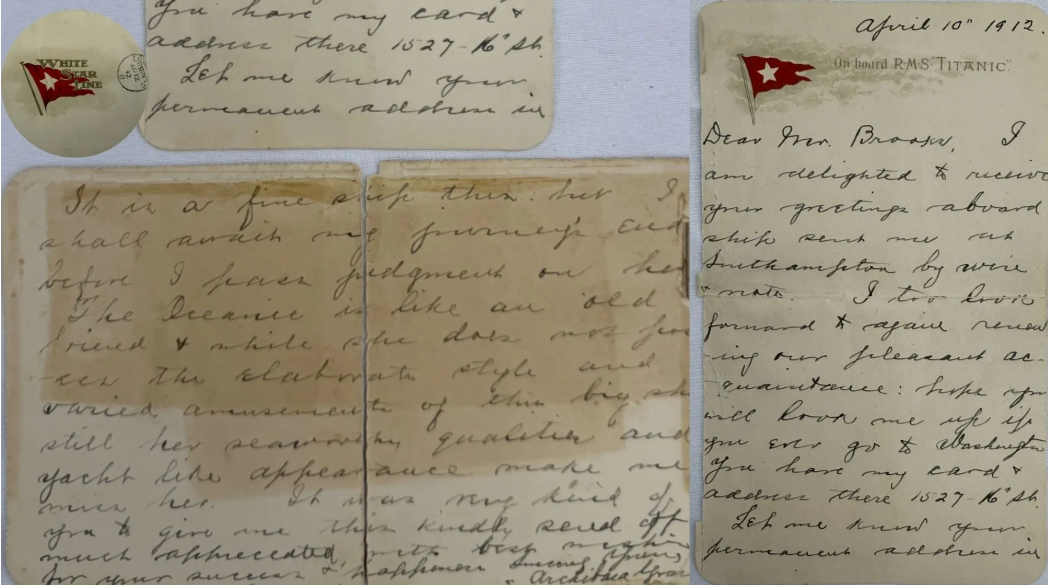 WHITE
STAR
LINE
You have my card &
address there 1527-16" St.
Let me know your
permanent address in
It is a fine ship this: but I
shall await my journey's end
before I pass judgment on her
The Oceanic is like an old
friend & while she does not pos
-ess the elaborate style and
varied amusements of this big sh
still her seaworthy qualities and
yacht like appearance make me
miss her. It was very kind of
you to give me this kindly send off
much appreciated, with best wishes
for your success & happiness
Archibald Grac
April 10" 1912.
On board R.M.S. "TITANIC".
Dear Mr. Brooks, I
am delighted to receive
your greetings aboard
ship sent me at
Southampton by wire
& note. I too look
forward to again renew
-ing our pleasant ac-
quaintance: hope you
will look me up if
you ever go to Washington
You have my card &
address there 1527-16" St.
Let me know your
permanent address in